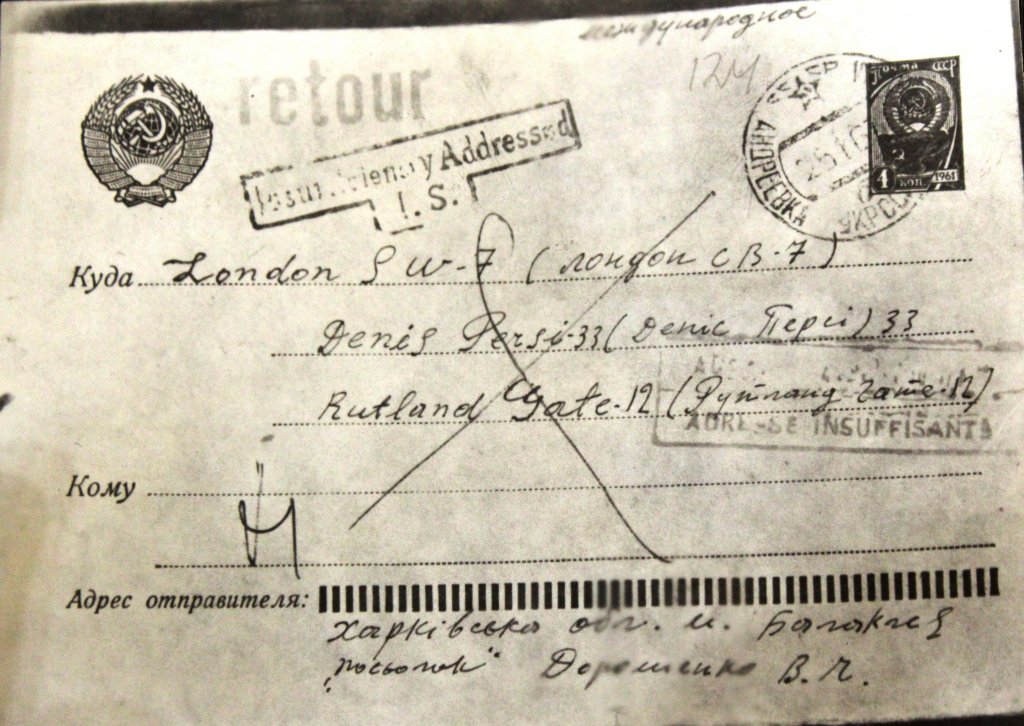 международное
retour
124
Insufficiency Addressed
I. S.
АНДРЕЕВКА УКРССР
Почта СССР
4 коп 1961
Куда London SW-7 (лондон св-7)
Denis Persi-33 (Деніс Персі) 33
Rutland Gate-12 (Рутланд Гате-12)
ADRESSE INSUFFISANTE
Кому
Адрес отправителя:
Харківська обл. м. Балаклея
„посьолок" Дорошенко В. Ч.